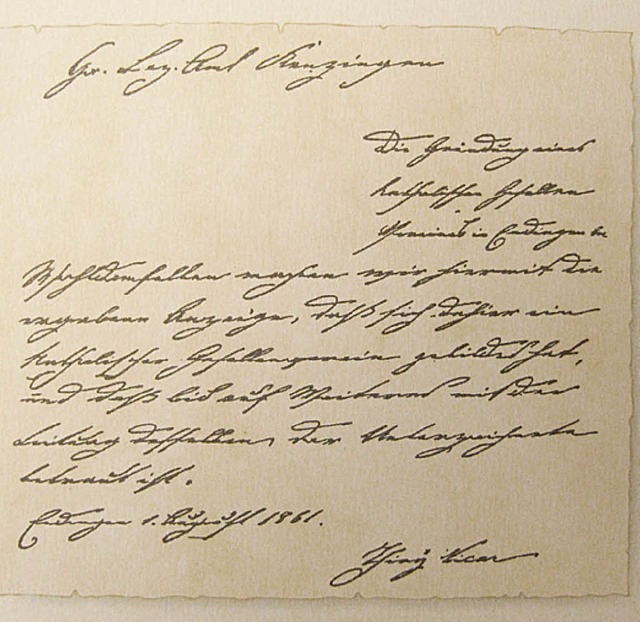 Gr. Bez. Amt Kenzingen
Die Gründung eines
katholischen Gesellen
Vereines in Endingen be
Wohldemselben machen wir hiermit die
ergebene Anzeige, daß sich dahier ein
katholischer Gesellenverein gebildet hat,
und daß bis auf Weiteres mit der
Leitung desselben, der Unterzeichnete
betraut ist.
Endingen 1. August 1861.
Vicar